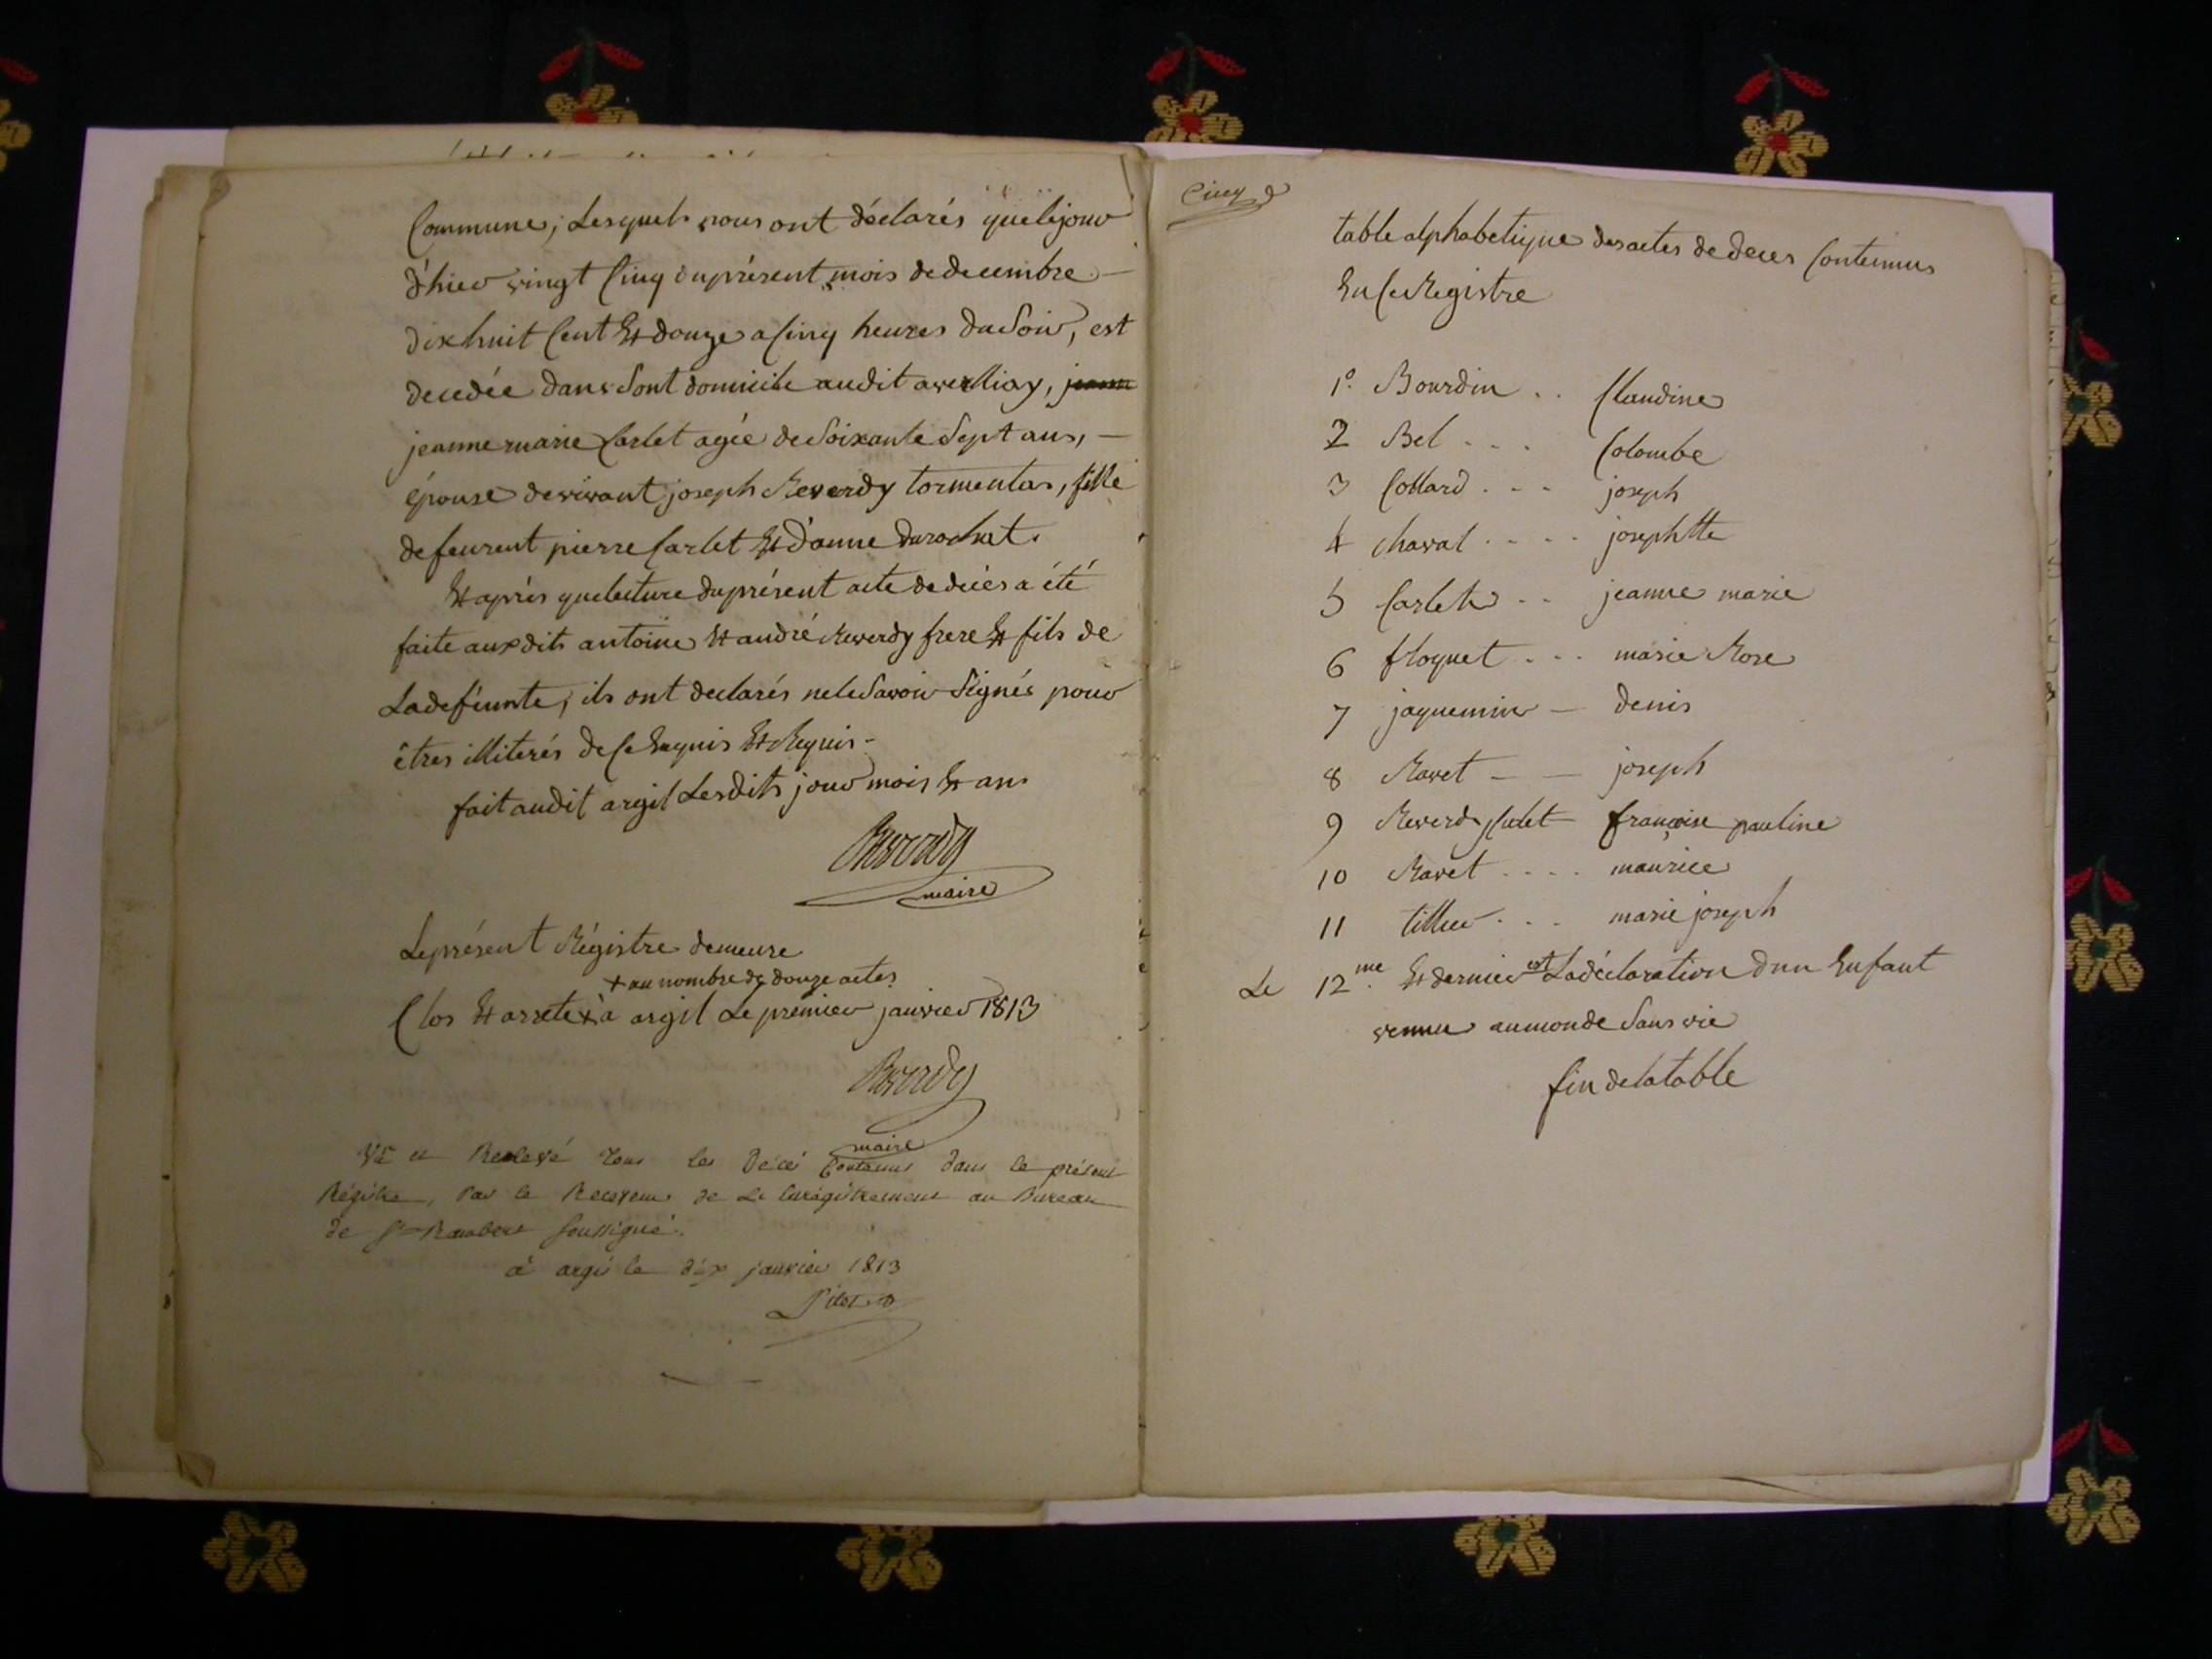 Commune, Lesquels nous ont déclarés que le jour
d'hier vingt Cinq du présent mois de decembre
dix huit Cent Et douze a Cinq heures du Soir, est
decedée dans Sont domicile audit averliaz, jeanne
jeanne marie Carlet agée de Soixante Sept ans,
épouse de vivant joseph Reverdy tormentas, fille
de feurent pierre Carlet Et d'anne durochat.
Et après que lecture du présent acte de décès a été
faite aux dits antoine Et andré Reverdy frere Et fils de
La defeunte, ils ont declarés ne le Savoir Signés pour
êtres illiterés de Ce Enquis Et Requis
fait audit argil Lesdits jour mois Et an
Reverdy
maire
Le présent Régistre demeure
+ au nombre de douze actes
Clos Et arreté + à argil Le premier janvier 1813
Reverdy
maire
Vû et Relevé tous les Décès Contenus dans le présent
Régistre, Par le Receveur de L'Enrégistrement au Bureau
de St Rambert Soussigné.
à argis le dix janvier 1813
Cinq
table alphabetique des actes de deces Contenus
En Ce Registre
1º. Bourdin .. Claudine
2 Bel ... Colombe
3 Collard ... joseph
4 Chaval .... josephtte
5 Carlet .. jeanne marie
6 floquet ... marie Rose
7 jaquemin — denis
8 Ravet — — joseph
9 Reverdy Culet — françoise pauline
10 Ravet .... maurice
11 tillier ... marie joseph
Le 12.me Et dernier est La déclaration d'un Enfant
vennu au monde Sans vie
fin de la table